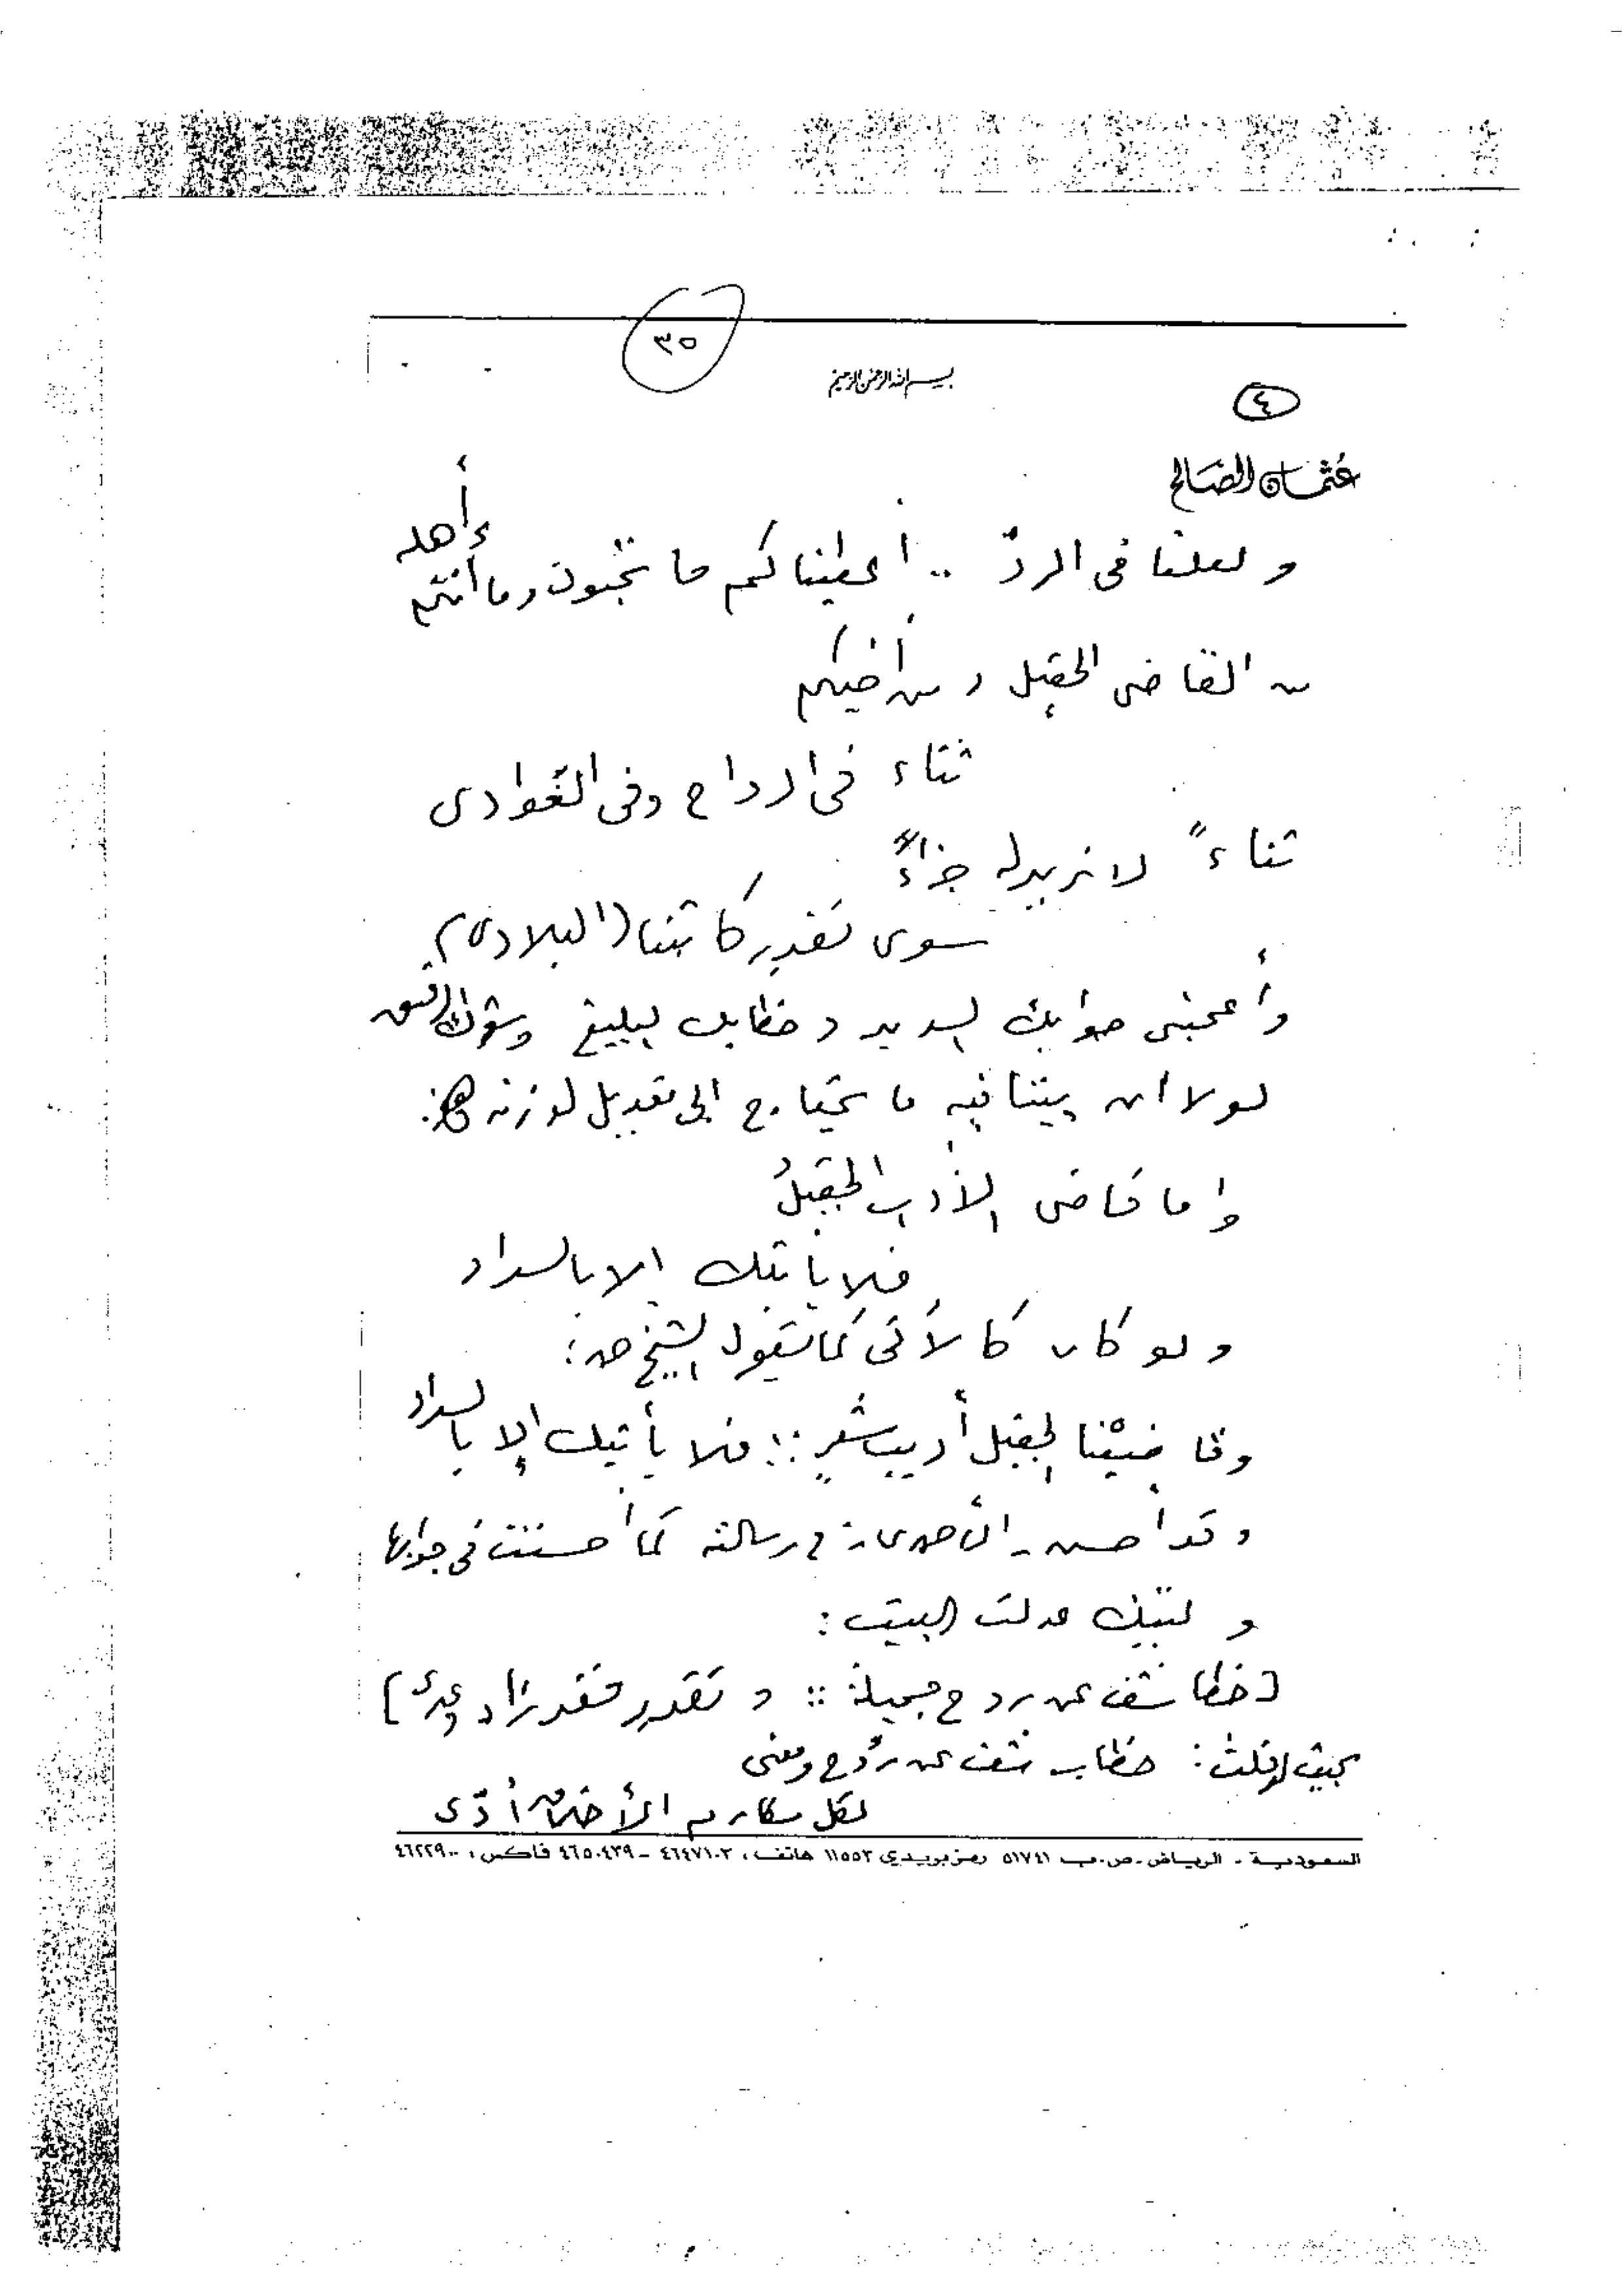 ٣٥
بسم الله الرحمن الرحيم
٤
عثمان الصالح
ولعلنا في الردّ .. أعطيناكم ما تحبون وما أنتم أهله
من القاضي الحقيل ومن أخيكم
ثناء في الرواح وفي الغوادي
ثناءً لا نريد له جزاءً
سوى تقدير كاتبنا (البلادي)
وأعجبني جوابك السديد وخطابك البليغ وشعرك
لولا أن بيتا فيه ما يحتاج الى تعديل لوزنه
وأما قاضي الأدب الحقيلُ
فلا يأتيك إلا بالسداد
ولو كان كالآتي كما تقول الشيخ حمد:
وقاضينا الحقيل أديب شعرٍ :: فلا يأتيك إلا بالسداد
وقد أحسن - في رسالته كما أحسنت في جوابها
وليتك عدلت البيت:
[خطا تشف عن روح جميلة :: وتقدير فقد زاد]
بحيث لو قلت: خطاب تشف عن روح ومعنى
لكل مكارم الأخلاق أدّى
السعودية - الرياض - ص.ب ٥١٧٤١ رمز بريدي ١١٥٥٣ هاتف: ٤٦٤٧١٠٢ - ٤٦٥٠٤٣٩ فاكس: ٤٦٢٢٩٠٠